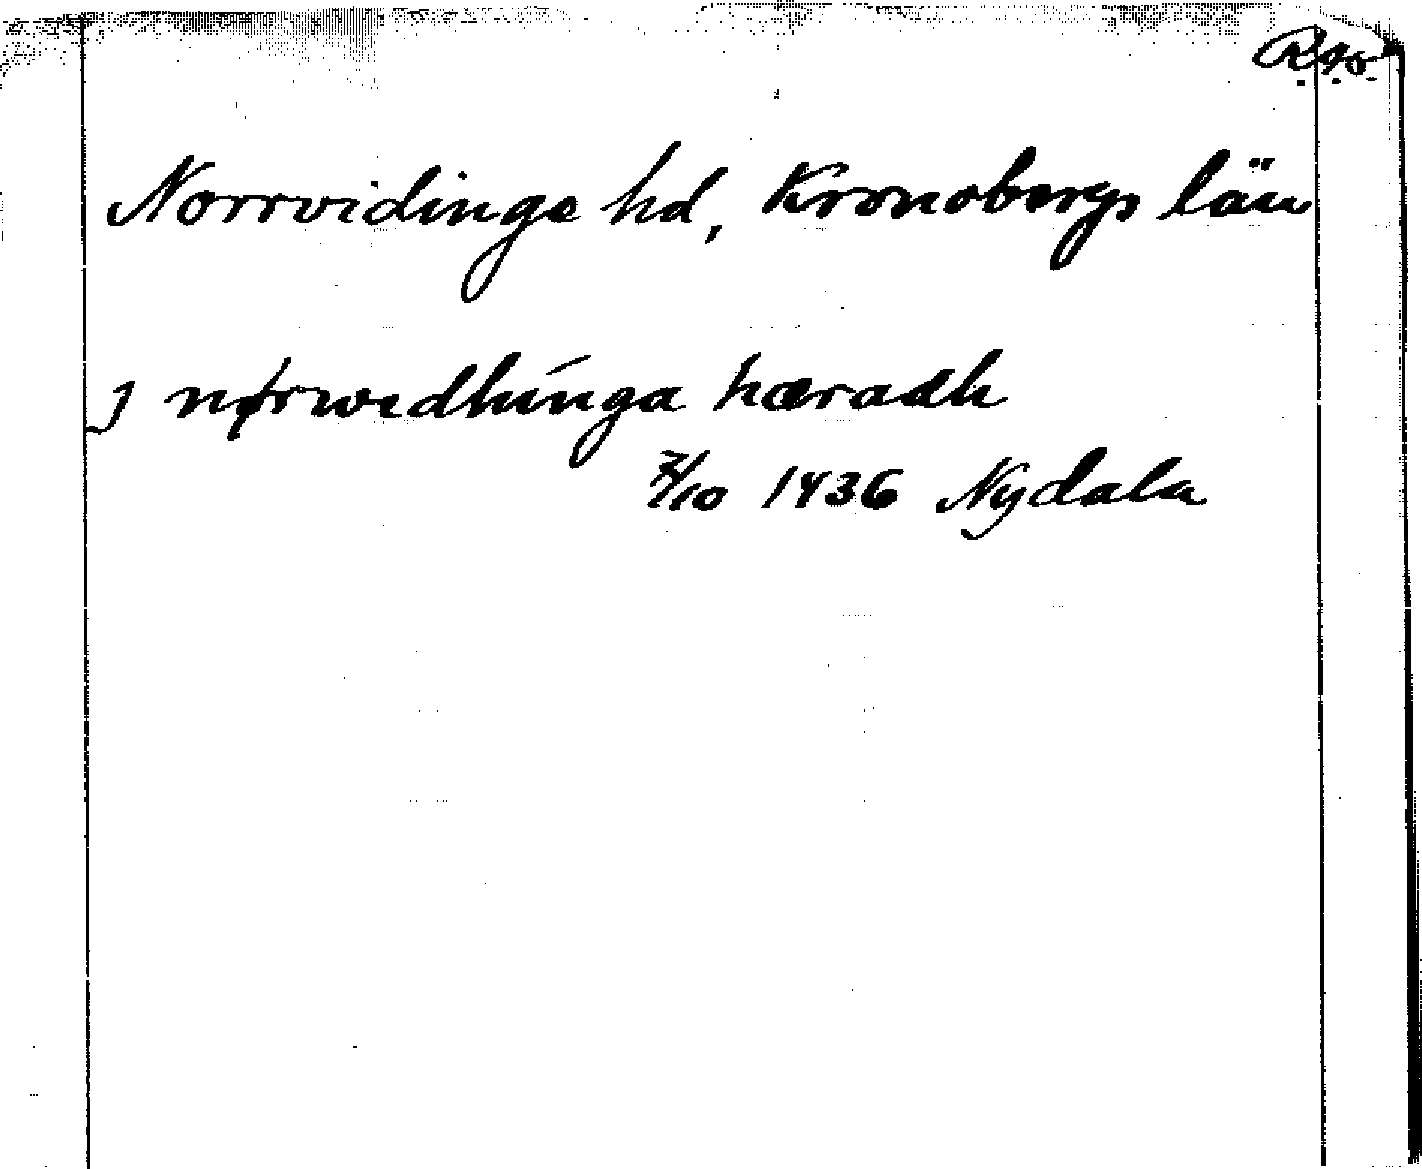 R.A.Ö.
Norrvidinge hd, Kronobergs län
j nørwedhinga hæradh
7/10 1436 Nydala